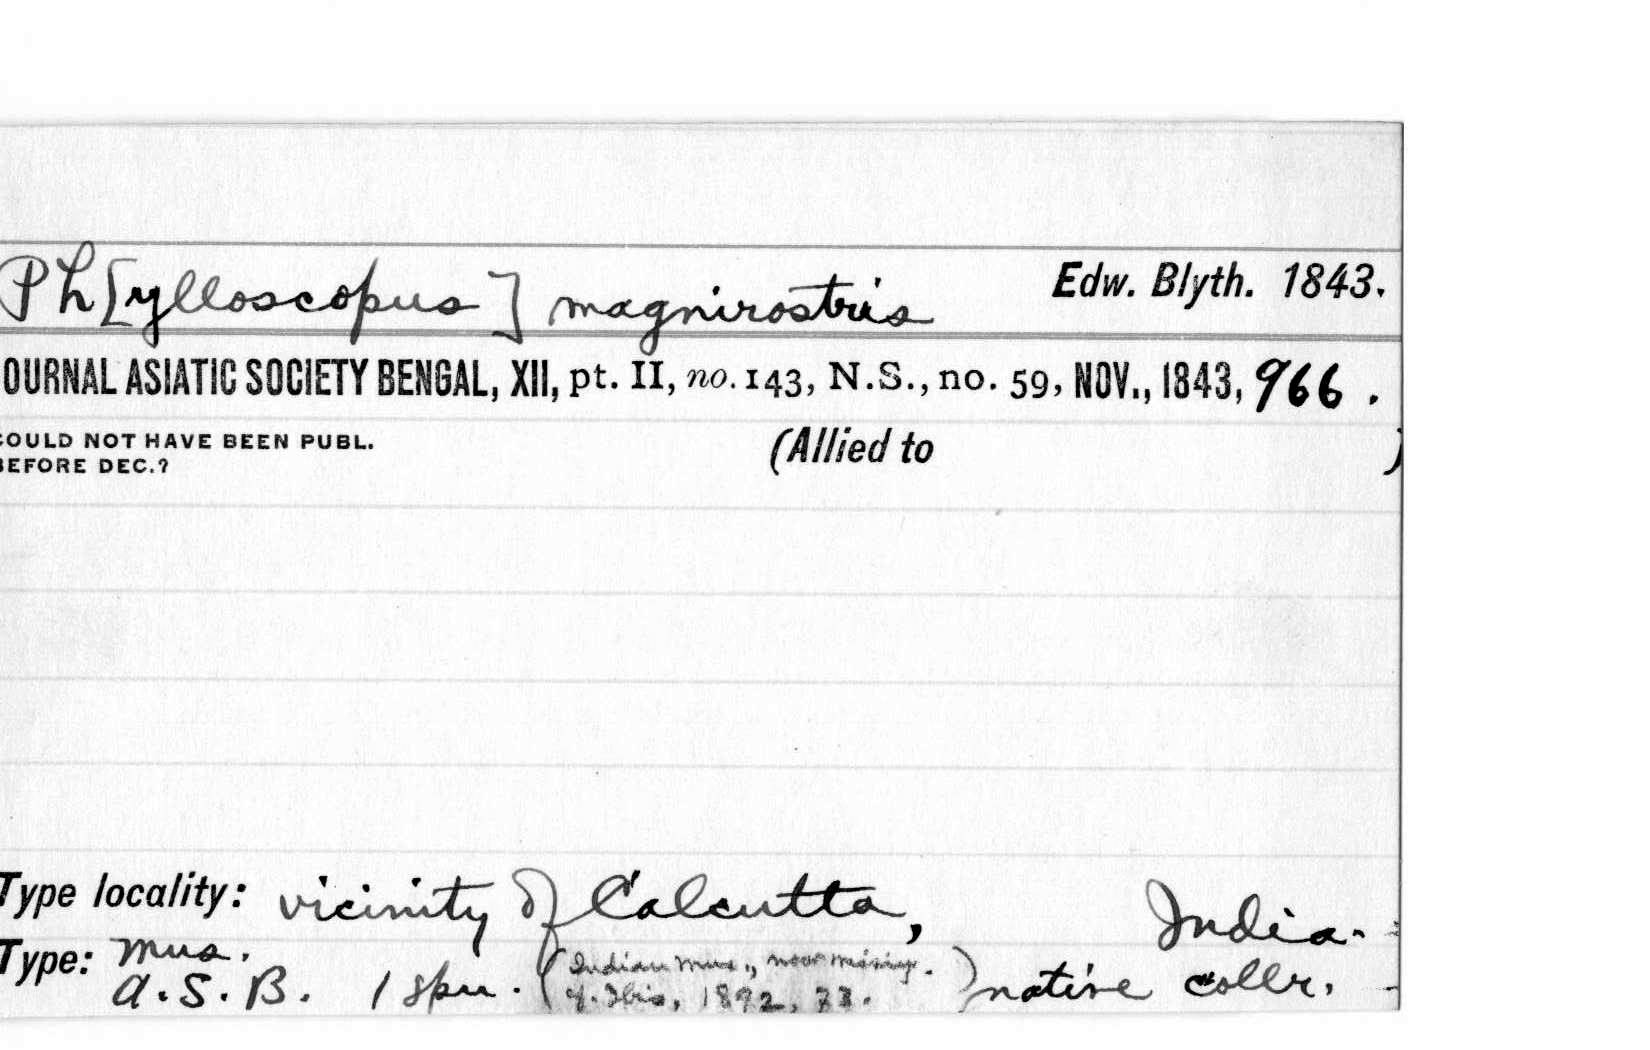 Ph[ylloscopus] magnirostris Edw. Blyth. 1843.
OURNAL ASIATIC SOCIETY BENGAL, XII, pt. II, no. 143, N.S., no. 59, NOV., 1843, 966.
COULD NOT HAVE BEEN PUBL.
BEFORE DEC.?
(Allied to )
Type locality: vicinity of Calcutta, India.
Type: Mus.
A.S.B. 1 spm. (Indian Mus., now missing. native collr.
cf. Ibis, 1892, 73.)